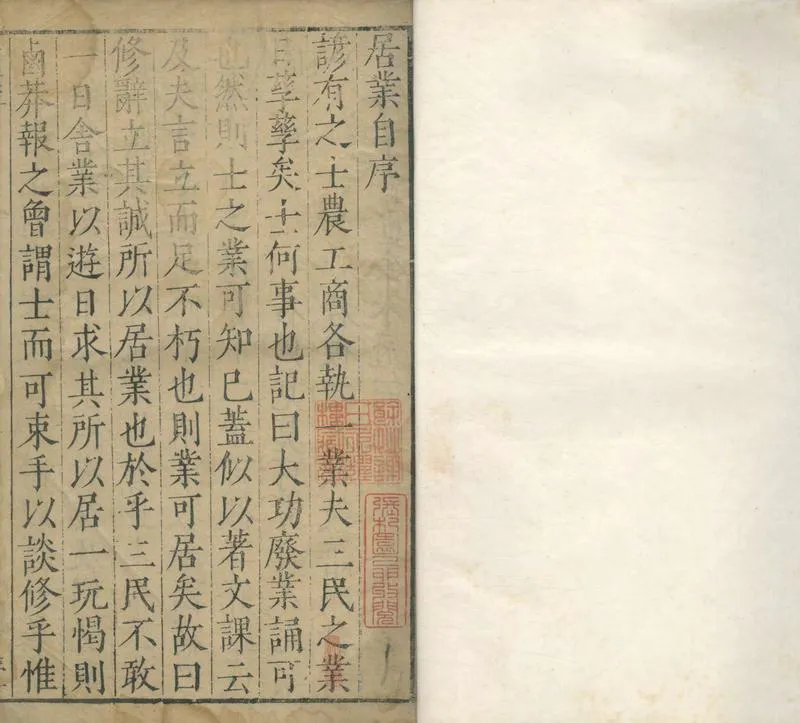 居業自序
諺有之士農工商各執一業夫三民之業
日孳孳矣士何事也記曰大功廢業誦可
也然則士之業可知已蓋似以著文課云
及夫言立而足不朽也則業可居矣故曰
修辭立其誠所以居業也於乎三民不敢
一日舍業以遊日求其所以居一玩愒則
鹵莽報之曾謂士而可束手以談修乎惟